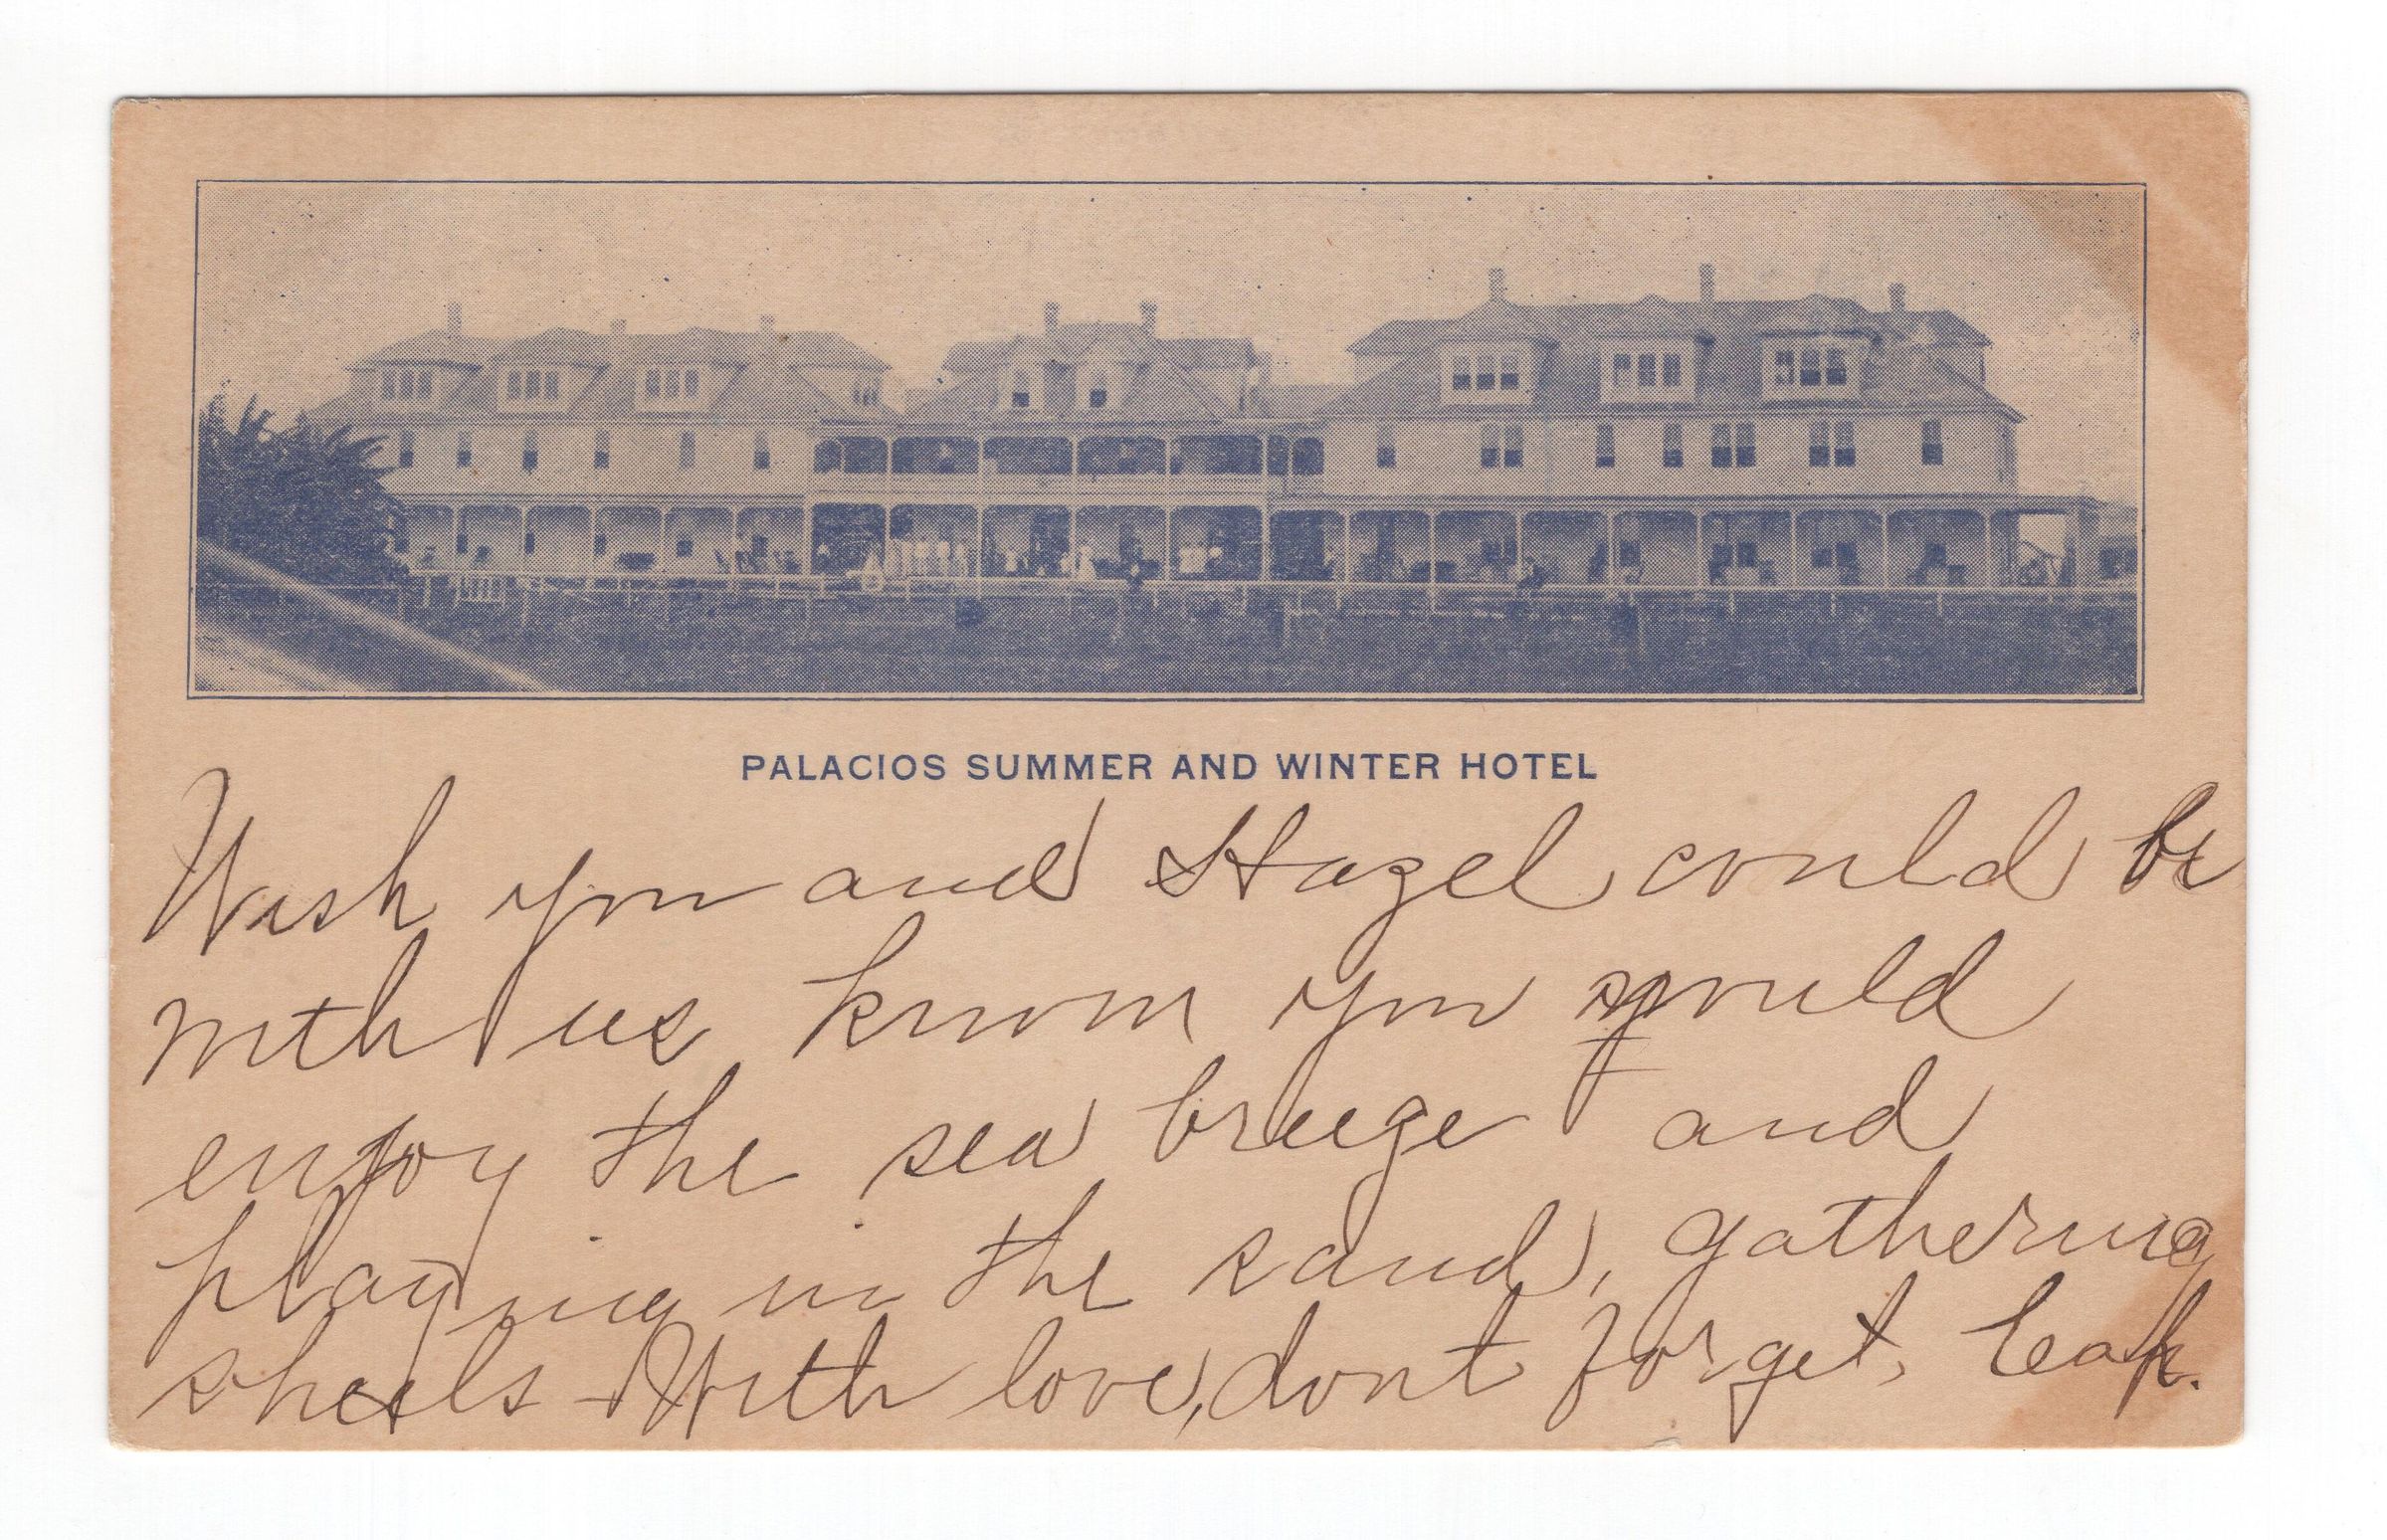 PALACIOS SUMMER AND WINTER HOTEL
Wish you and Hazel could be
with us know you would
enjoy the sea breeze and
playing in the sand, gathering
shells - With love, dont forget,